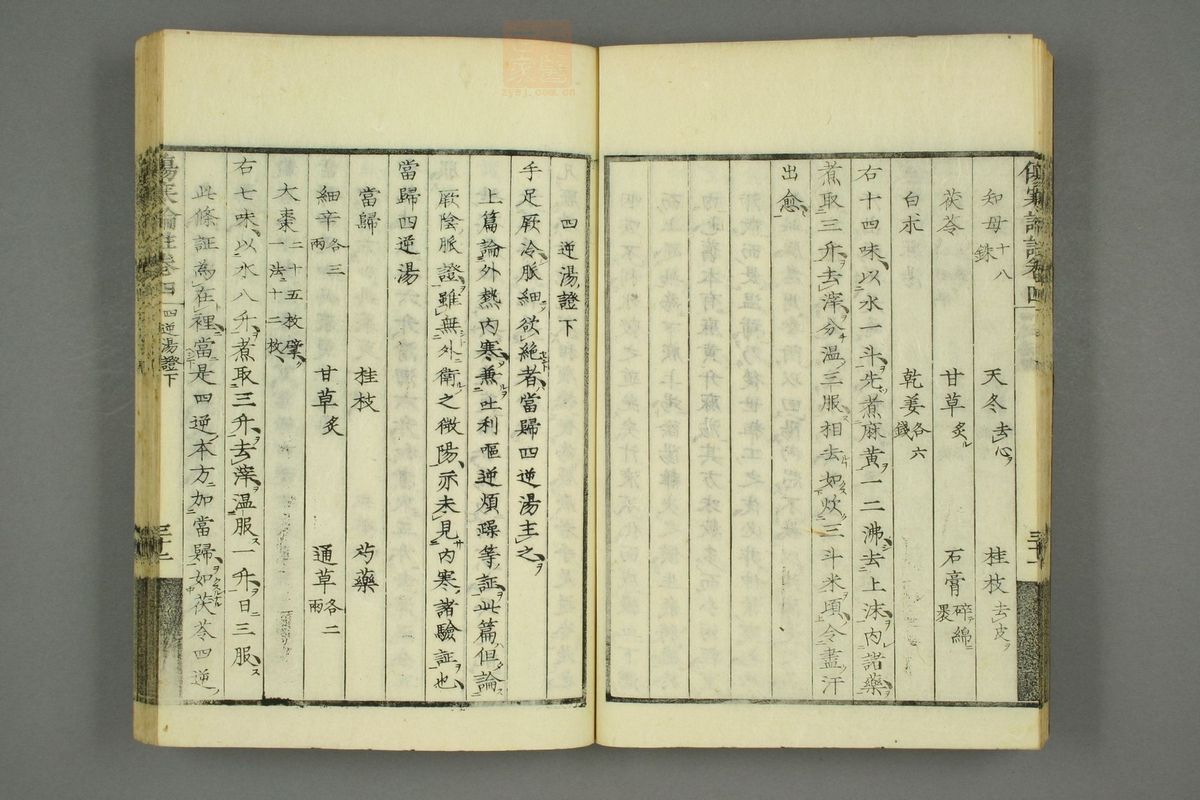 知母十八銖 天冬去心 桂枝去皮
茯苓 甘草炙 石膏碎綿裹
白朮 乾姜各六錢
右十四味以水一斗先煮麻黃一二沸去上沫內諸藥
煮取三升去滓分温三服相去如炊三斗米頃令盡汗
出愈
四逆湯證下
手足厥冷脈細欲絶者當歸四逆湯主之
上篇論外熱內寒兼吐利嘔逆煩躁等証此篇但論
厥陰脈證雖無外衛之微陽亦未見內寒諸驗証也
當歸四逆湯
當歸 桂枝 芍藥
細辛各三兩 甘草炙 通草各二兩
大棗二十五枚擘一法十二枚
右七味以水八升煮取三升去滓温服一升日三服
此條証為在裡當是四逆本方加當歸如茯苓四逆
傷寒論註卷四 四逆湯證下 三十二
zysj.com.cn